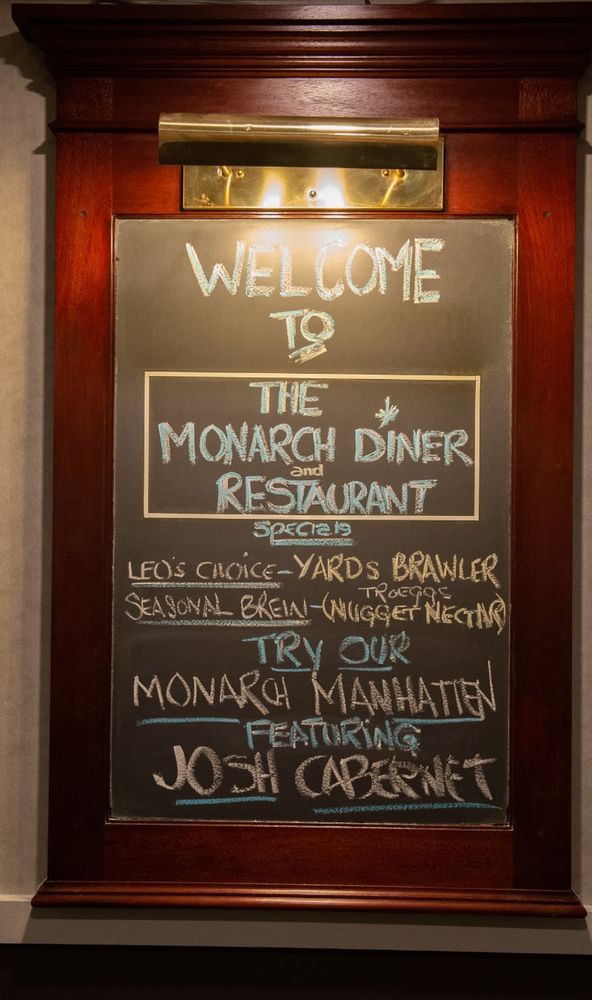 WELCOME
TO
THE
MONARCH DINER
and
RESTAURANT
Specials
LEO'S CHOICE - YARDS BRAWLER
TROEGGS
SEASONAL BREW - (NUGGET NECTAR)
TRY OUR
MONARCH MANHATTEN
FEATURING
JOSH CABERNET